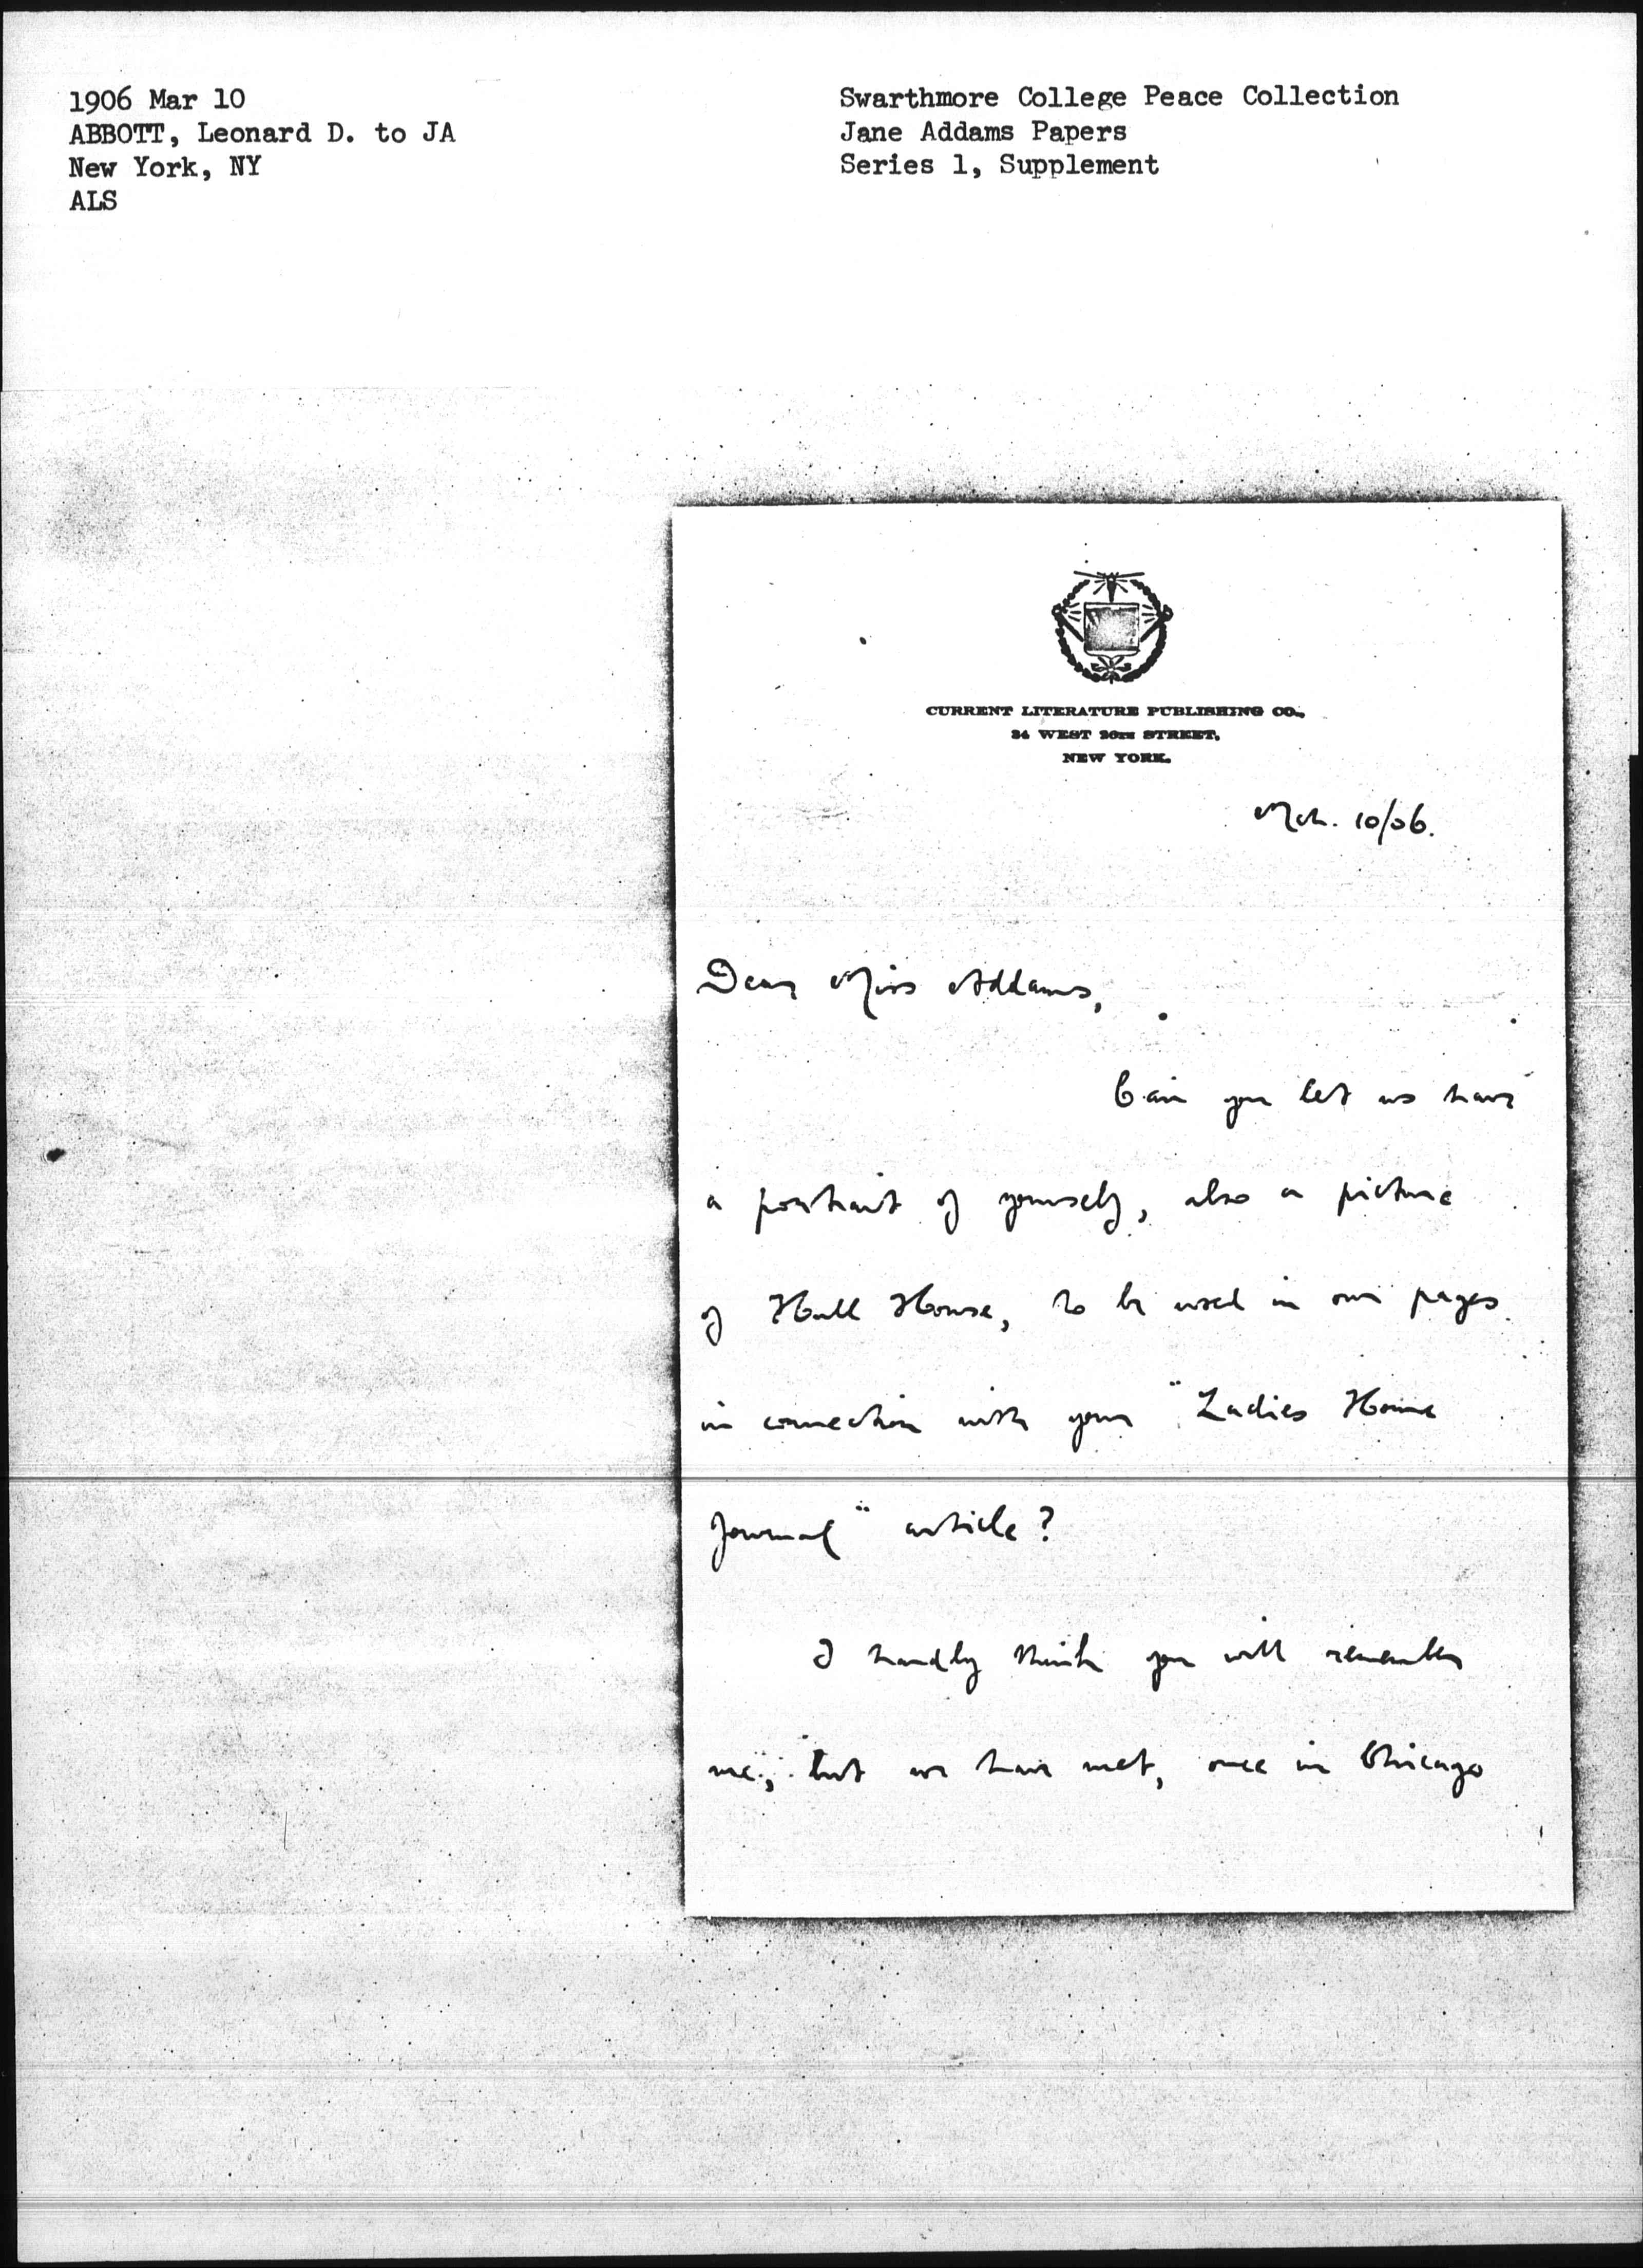 1906 Mar 10
ABBOTT, Leonard D. to JA
New York, NY
ALS
Swarthmore College Peace Collection
Jane Addams Papers
Series 1, Supplement
CURRENT LITERATURE PUBLISHING CO.,
34 WEST 26TH STREET,
NEW YORK.
Mch. 10/06.
Dear Miss Addams,
Can you let us have
a portrait of yourself, also a picture
of Hull House, to be used in our pages
in connection with your "Ladies Home
Journal" article?
I hardly think you will remember
me, but we have met, once in Chicago